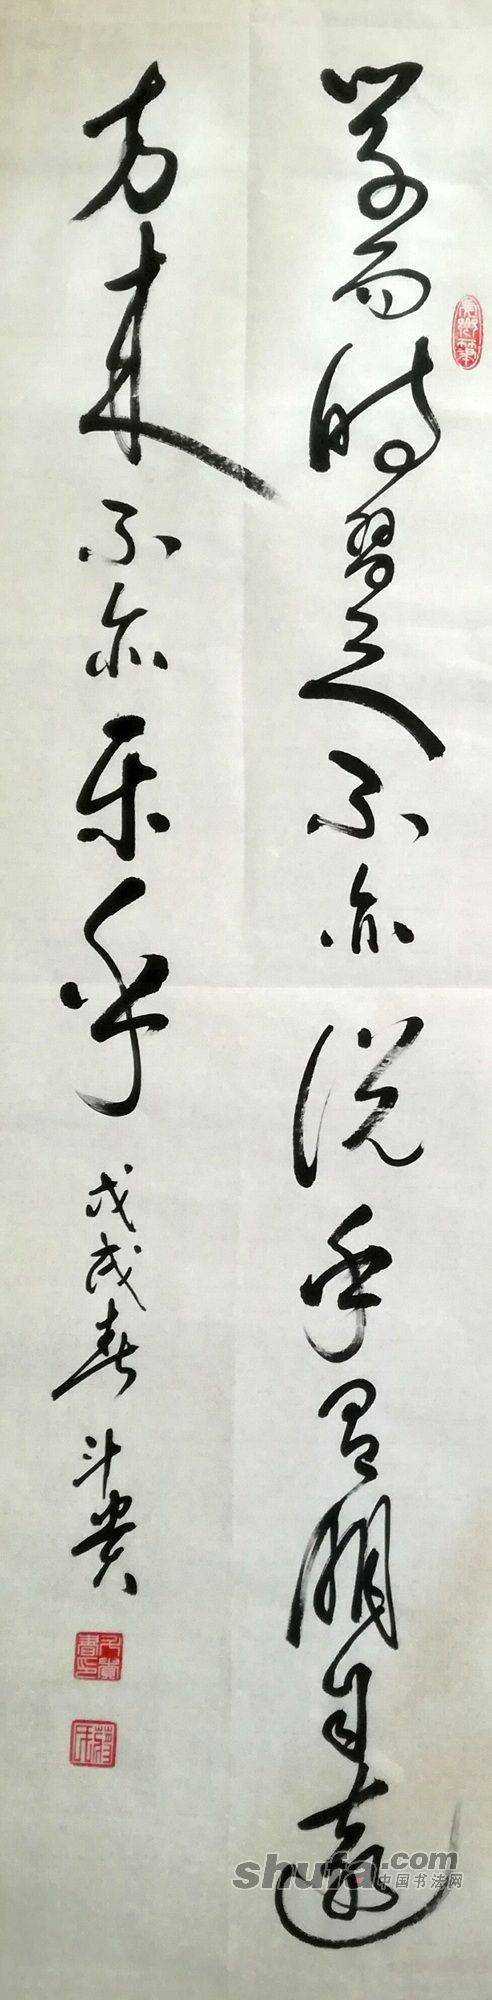 学而时习之不亦说乎有朋自远
方来不亦乐乎
戊戌春 斗贵
shufa.com
中国书法网